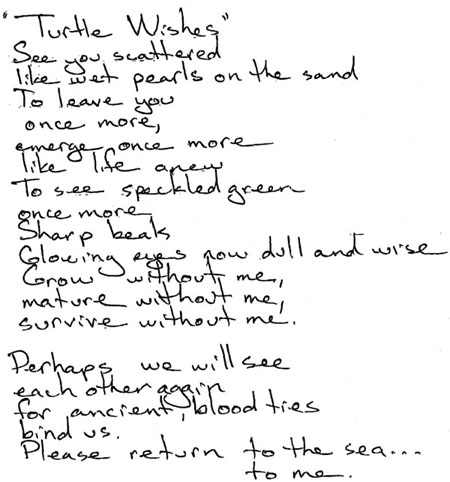 "Turtle Wishes"
See you scattered
like wet pearls on the sand
To leave you
once more,
emerge once more
like life anew
To see speckled green
once more
Sharp beak
Glowing eyes now dull and wise
Grow without me,
mature without me,
survive without me.
Perhaps we will see
each other again
for ancient, blood ties
bind us.
Please return to the sea...
to me.